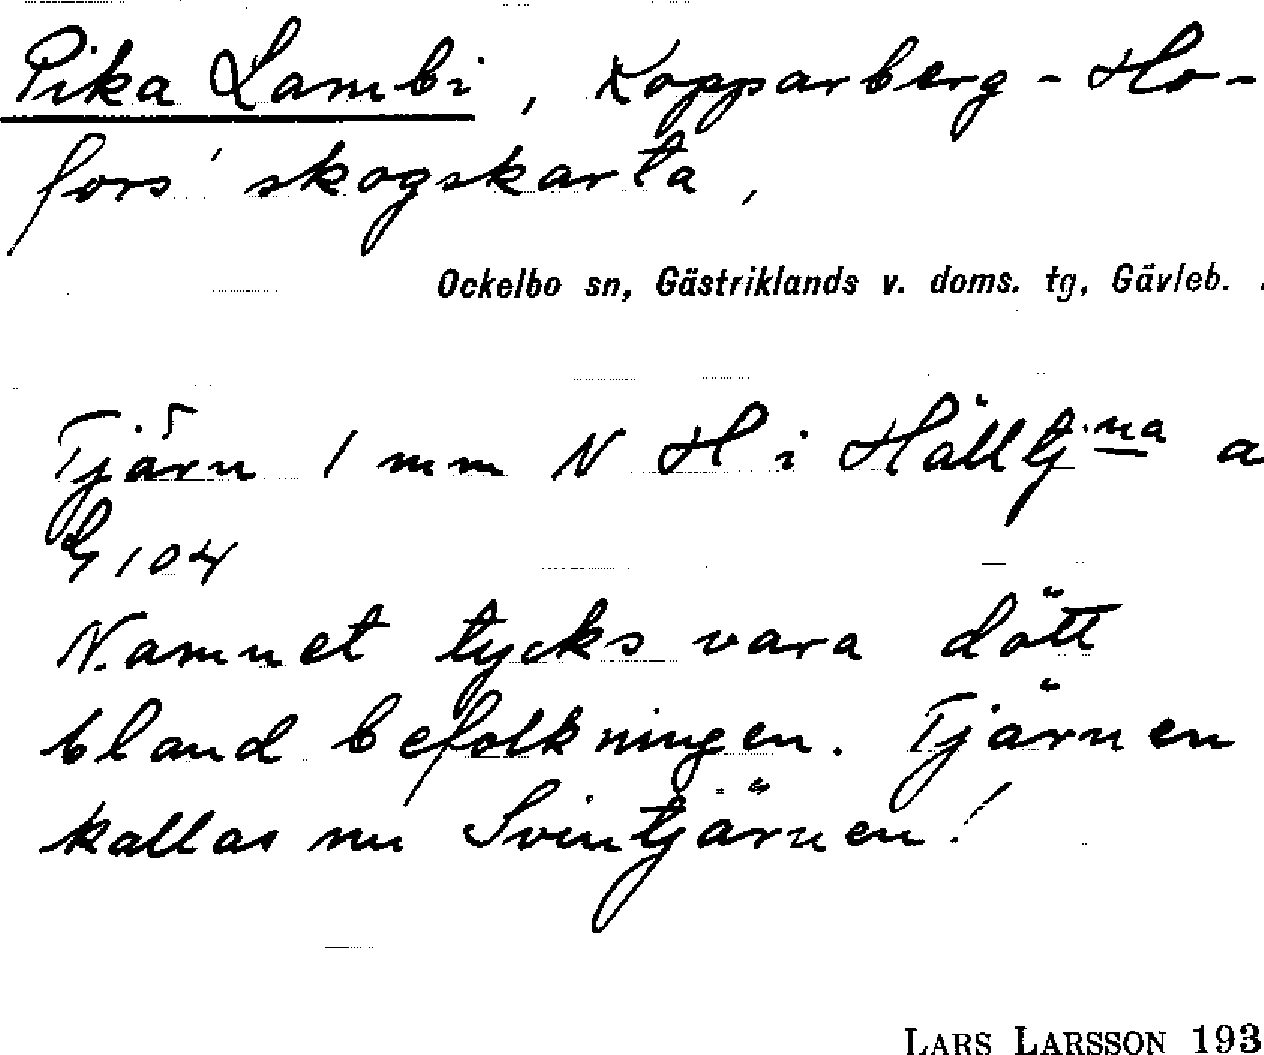 Pika Lambi, Kopparberg-Ho-
fors' skogskarta,
Ockelbo sn, Gästriklands v. doms. tg, Gävleb.
Tjärn 1 mm N H i Hälltj:na a
G 104
Namnet tycks vara dött
bland befolkningen. Tjärnen
kallas nu Svintjärnen!
LARS LARSSON 193